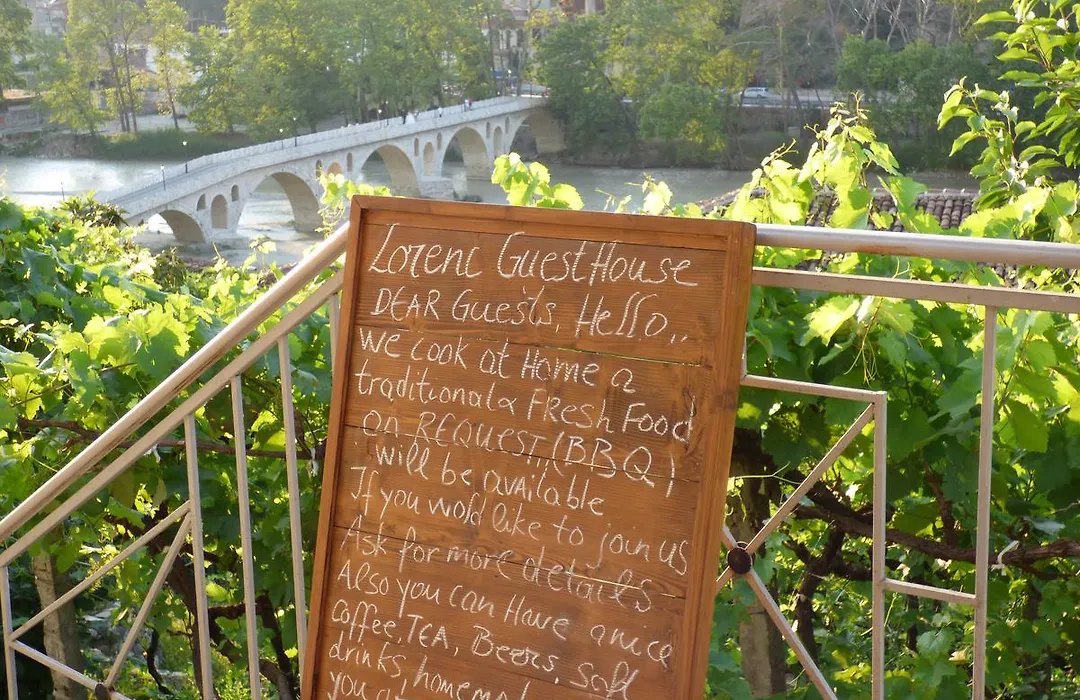 Lorenc GuestHouse
DEAR Guests, Hello,,
we cook at Home a
traditional & FResh Food
on REQUEST, (BBQ)
will be available
If you would like to join us
Ask for more details
Also you can Have a nice
coffee, TEA, Beers, soft
drinks, homema
you